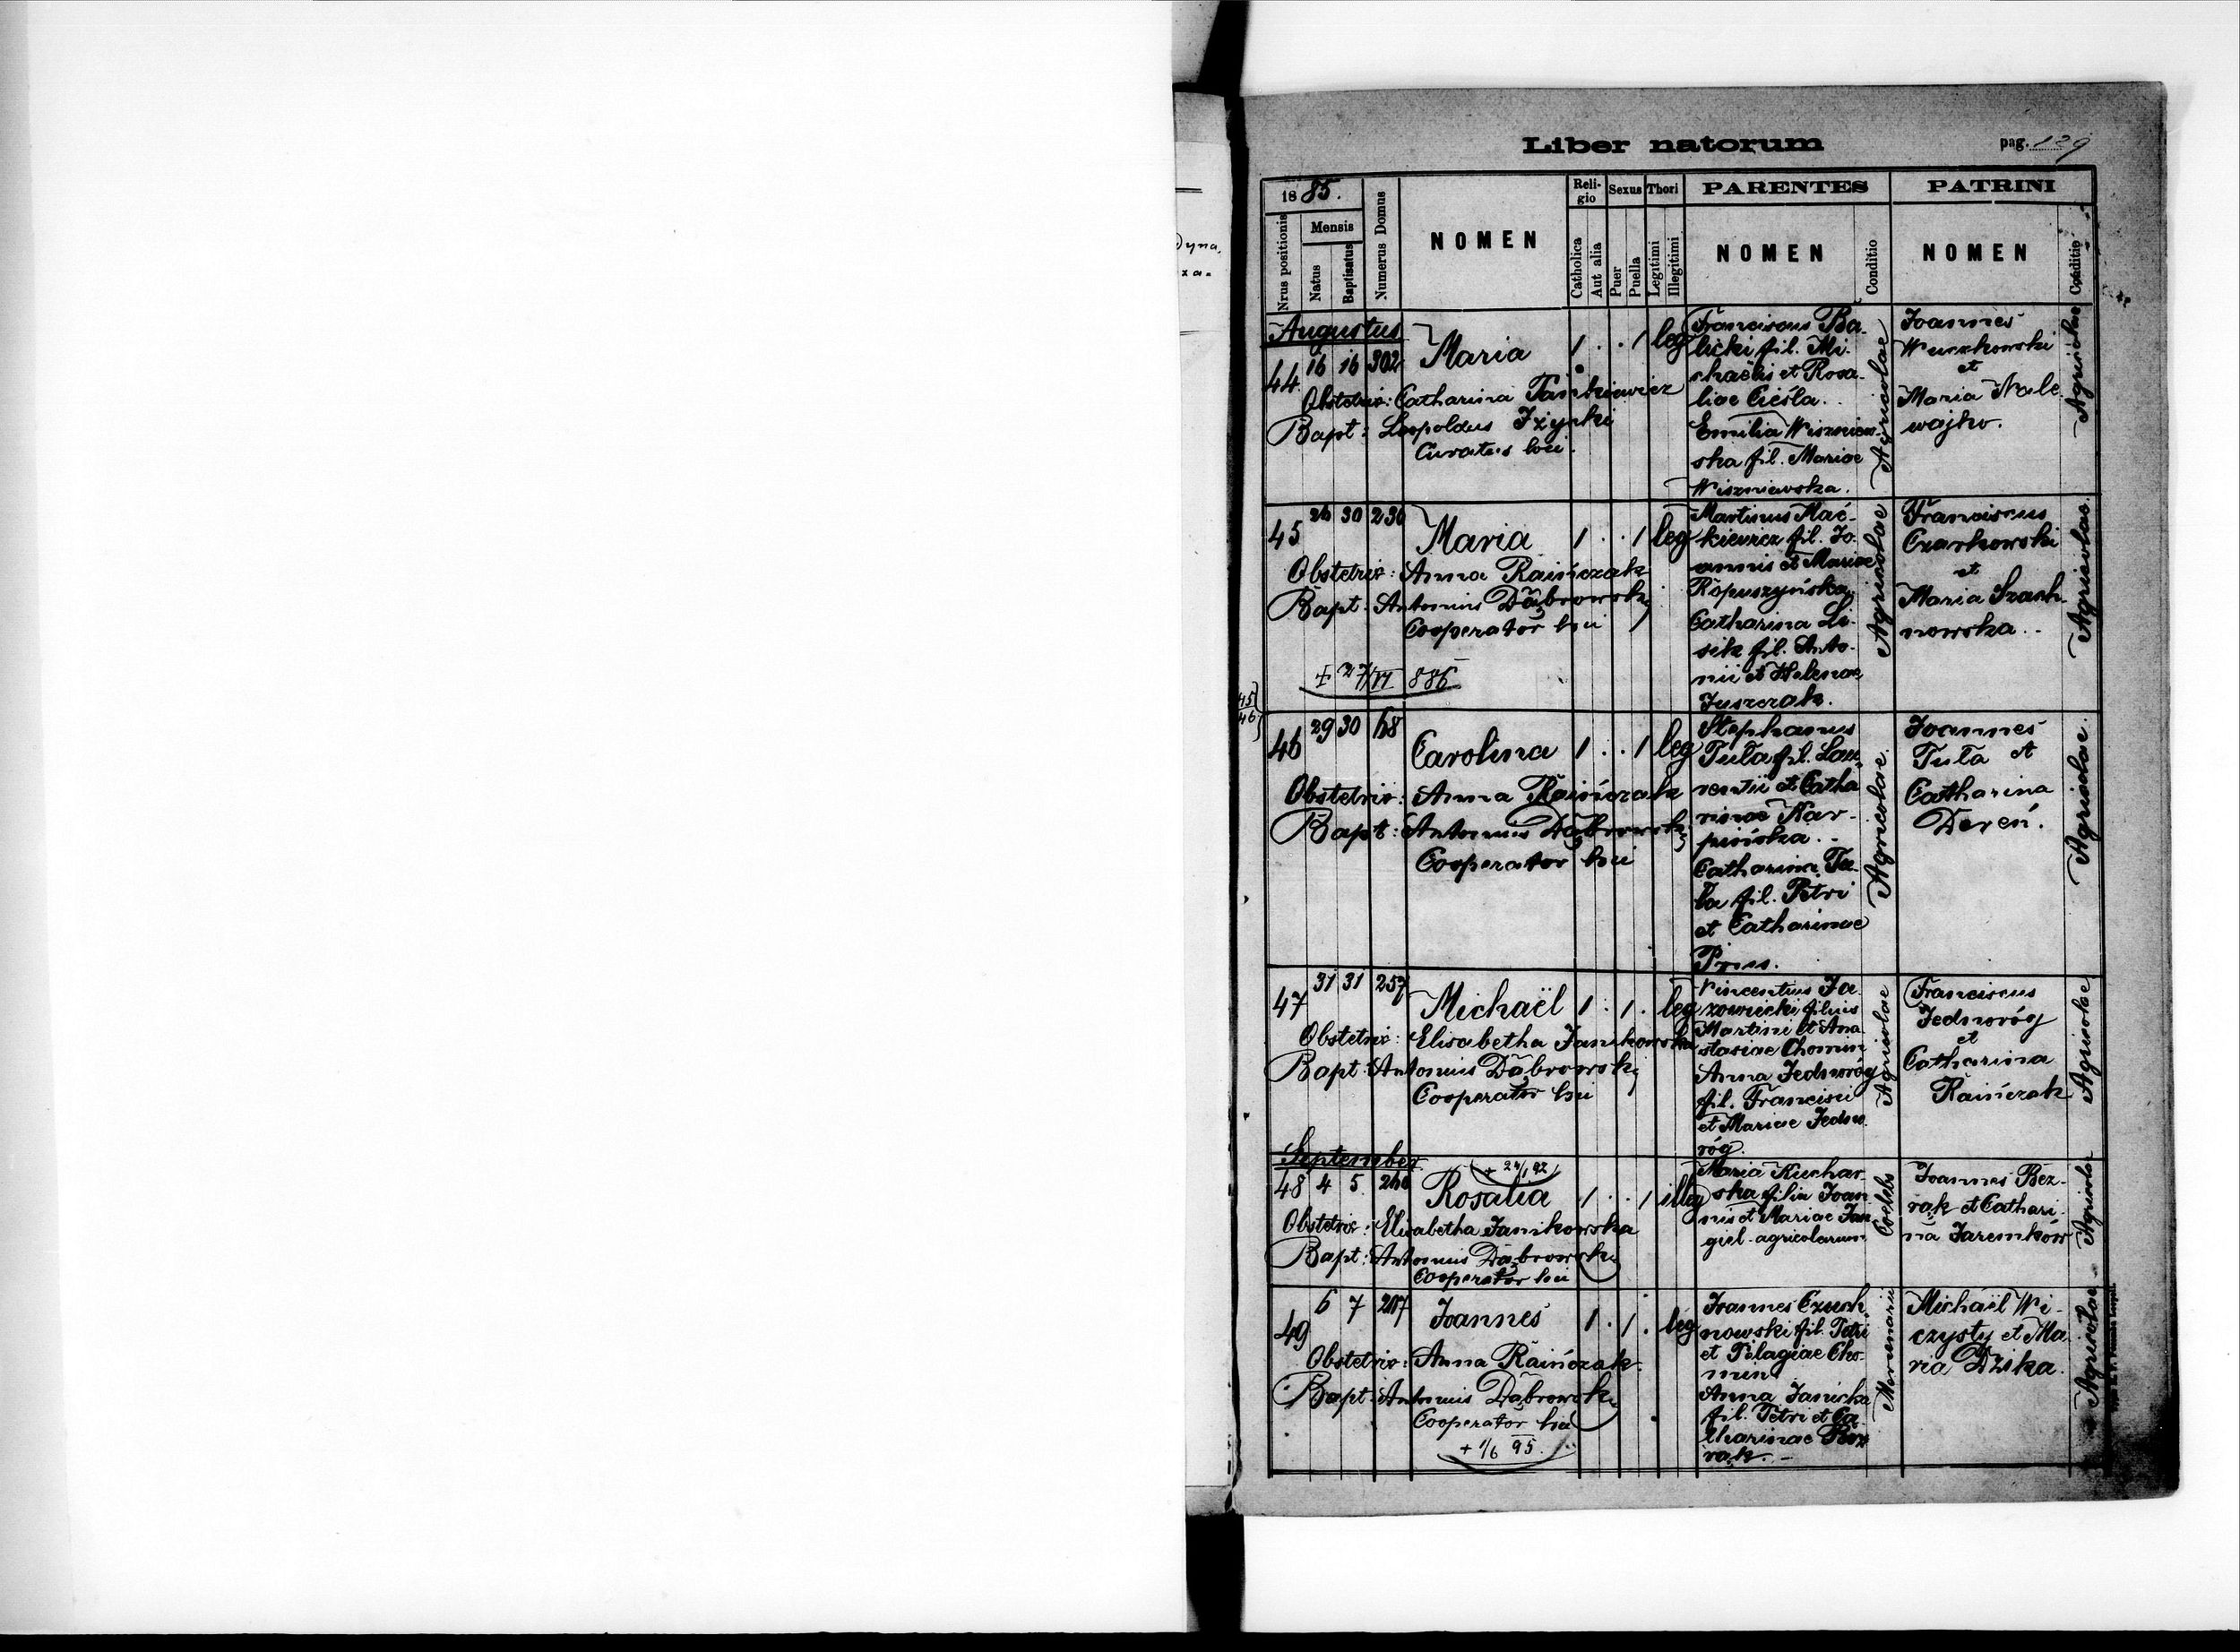 Liber natorum
pag. 129
1885.
Nrus positionis
Mensis
Natus
Baptisatus
Numerus Domus
NOMEN
Religio
Catholica
Aut alia
Sexus
Puer
Puella
Thori
Legitimi
Illegitimi
PARENTES
NOMEN
Conditio
PATRINI
NOMEN
Conditio
Augustus
44 16 16 302 Maria 1 . . 1 leg
Obstetrix: Catharina Pankiewicz
Bapt: Leopoldus
Curatus loci.
Franciscus Ba-
licki fil. Mi-
chaëlis et Rosa-
liae Cieśla.
Emilia Wiszniew-
ska fil. Mariae
Wiszniewska.
Agricolae
Joannes
et
Maria Nale
wajko.
Agricolae
45 26 30 230 Maria 1 . . 1 leg
Obstetrix: Anna Raińczak
Bapt: Antonius Dąbrowski
Cooperator loci
+ 27/VI 886
Martinus Mac-
kiewicz fil. Jo-
annis et Mariae
Ropuszyńska.
Catharina Li-
sik fil. Anto-
nii et Helenae
Juszczak.
Agricolae
Franciscus
Czarkowski
et
Maria Szach-
nowska.
Agricolae
45
46
46 29 30 68 Carolina 1 . . 1 leg
Obstetrix: Anna Raińczak
Bapt: Antonius Dąbrowski
Cooperator loci
Stephanus
Tuła fil. Lau-
rentii et Catha
rinae Kar-
pińska.
Catharina Tu-
ła fil. Petri
et Catharinae
Prus.
Agricolae
Joannes
Tuła et
Catharina
Dereń.
Agricolae
47 31 31 257 Michaël 1 . 1 . leg
Obstetrix: Elisabetha Janikowska
Bapt: Antonius Dąbrowski
Cooperator loci
Vincentius Ja-
zowiecki filius
Martini et Ana
stasiae Chomin
Anna Jednoróg
fil. Francisci
et Mariae Jedno
róg.
Agricolae
Franciscus
Jednoróg
et
Catharina
Raińczak
Agricolae
September
48 4 5 Rosalia 1 . . 1 illeg
Obstetrix: Elisabetha Janikowska
Bapt: Antonius Dąbrowski
Cooperator loci
Maria Kuchar-
ska filia Joan
nis et Mariae Jan
giel agricolarum
Coelebs
Joannes Bez-
rak et Cathari-
na Jaremków
Agricolae
49 6 7 Joannes 1 . 1 . leg
Obstetrix: Anna Raińczak
Bapt: Antonius Dąbrowski
Cooperator loci
+ 1/6 95.
Joannes Czuch
nowski fil. Petri
et Pelagiae Cho-
min
Anna Janicka
fil. Petri et Ca-
tharinae Bez
rak.
Mercenarii
Michaël Wi-
czysty et Ma
ria Dzika.
Agricolae